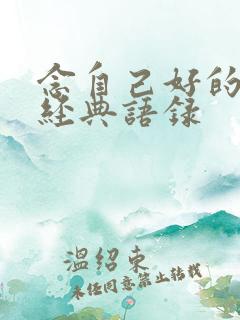 念自己好的
經典語录
溫紹東
未经同意禁止转载